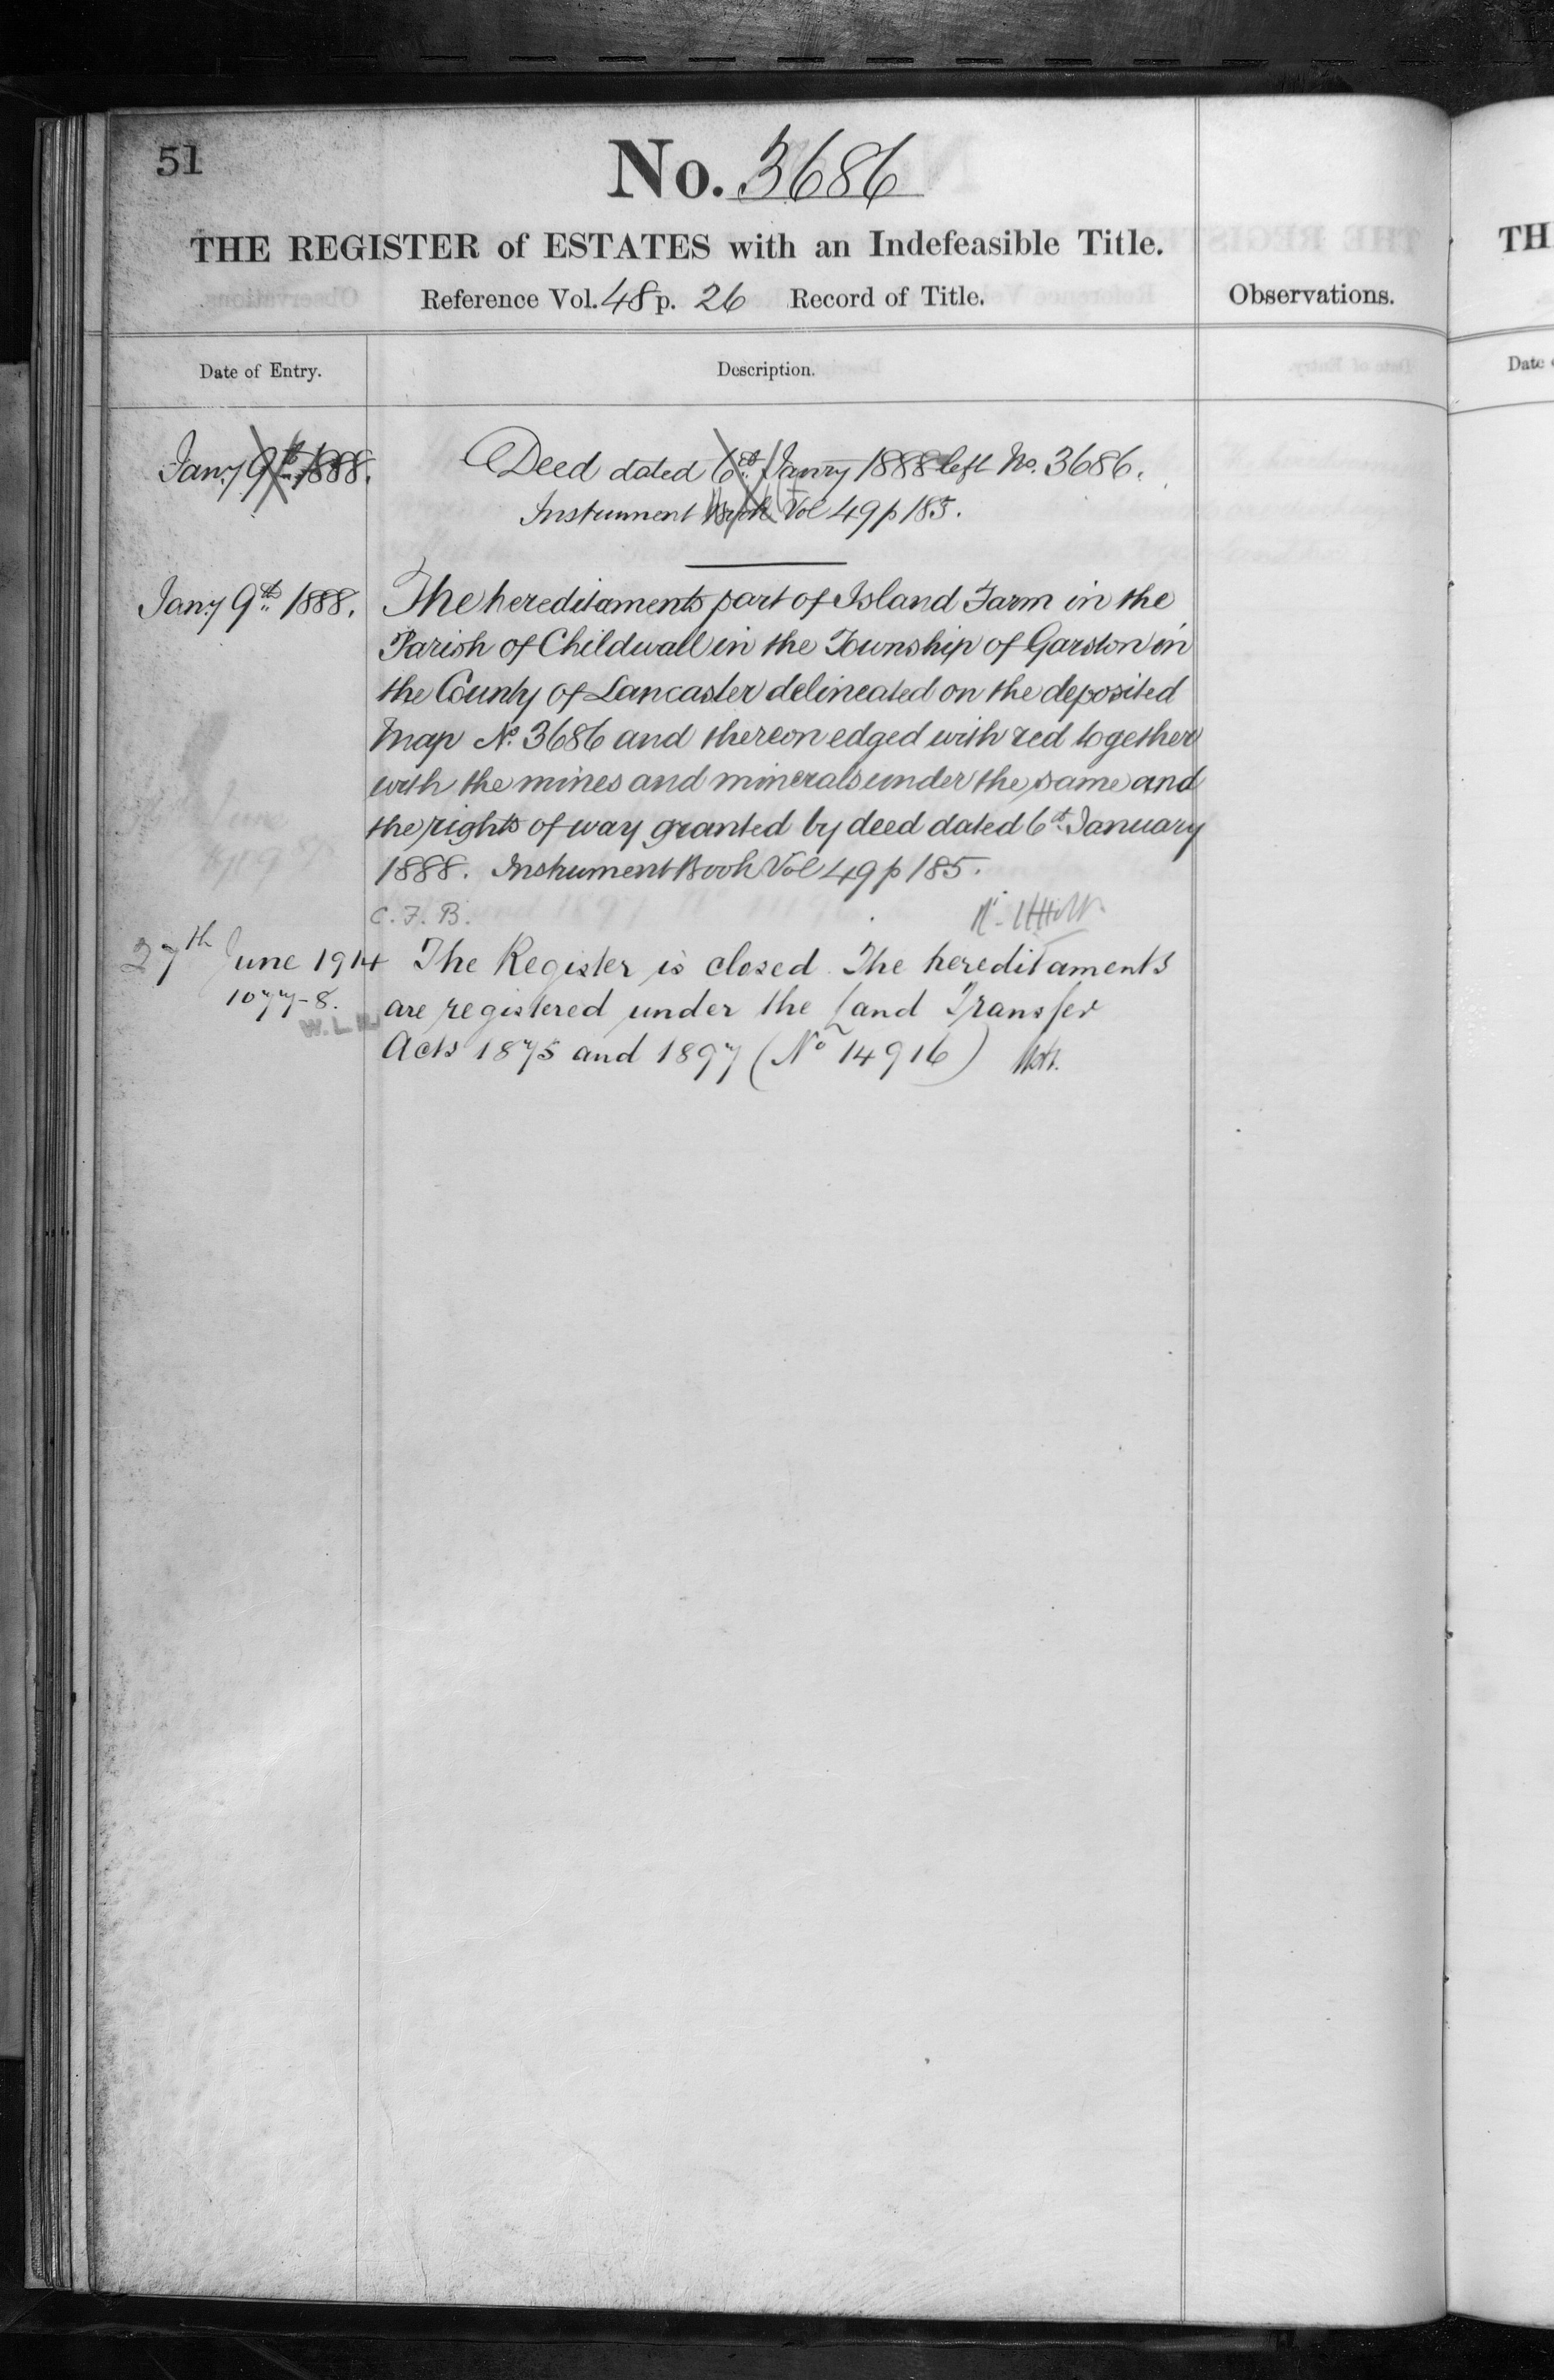 51
No. 3686
THE REGISTER of ESTATES with an Indefeasible Title.
Reference Vol. 48 p. 26 Record of Title.
Observations.
Date of Entry.
Description.
Jany 9th 1888.
Deed dated 6th Janry 1888 left No. 3686.
Instrument Book Vol 49 p 185.
Jany 9th 1888.
The hereditaments part of Island Farm in the
Parish of Childwall in the Township of Garston in
the County of Lancaster delineated on the deposited
Map No. 3686 and thereon edged with red together
with the mines and minerals under the same and
the rights of way granted by deed dated 6th January
1888. Instrument Book Vol 49 p 185.
C. F. B.
27th June 1914
The Register is closed. The hereditaments
1077-8.
are registered under the Land Transfer
Acts 1875 and 1897 (No 14916)
TH
Date